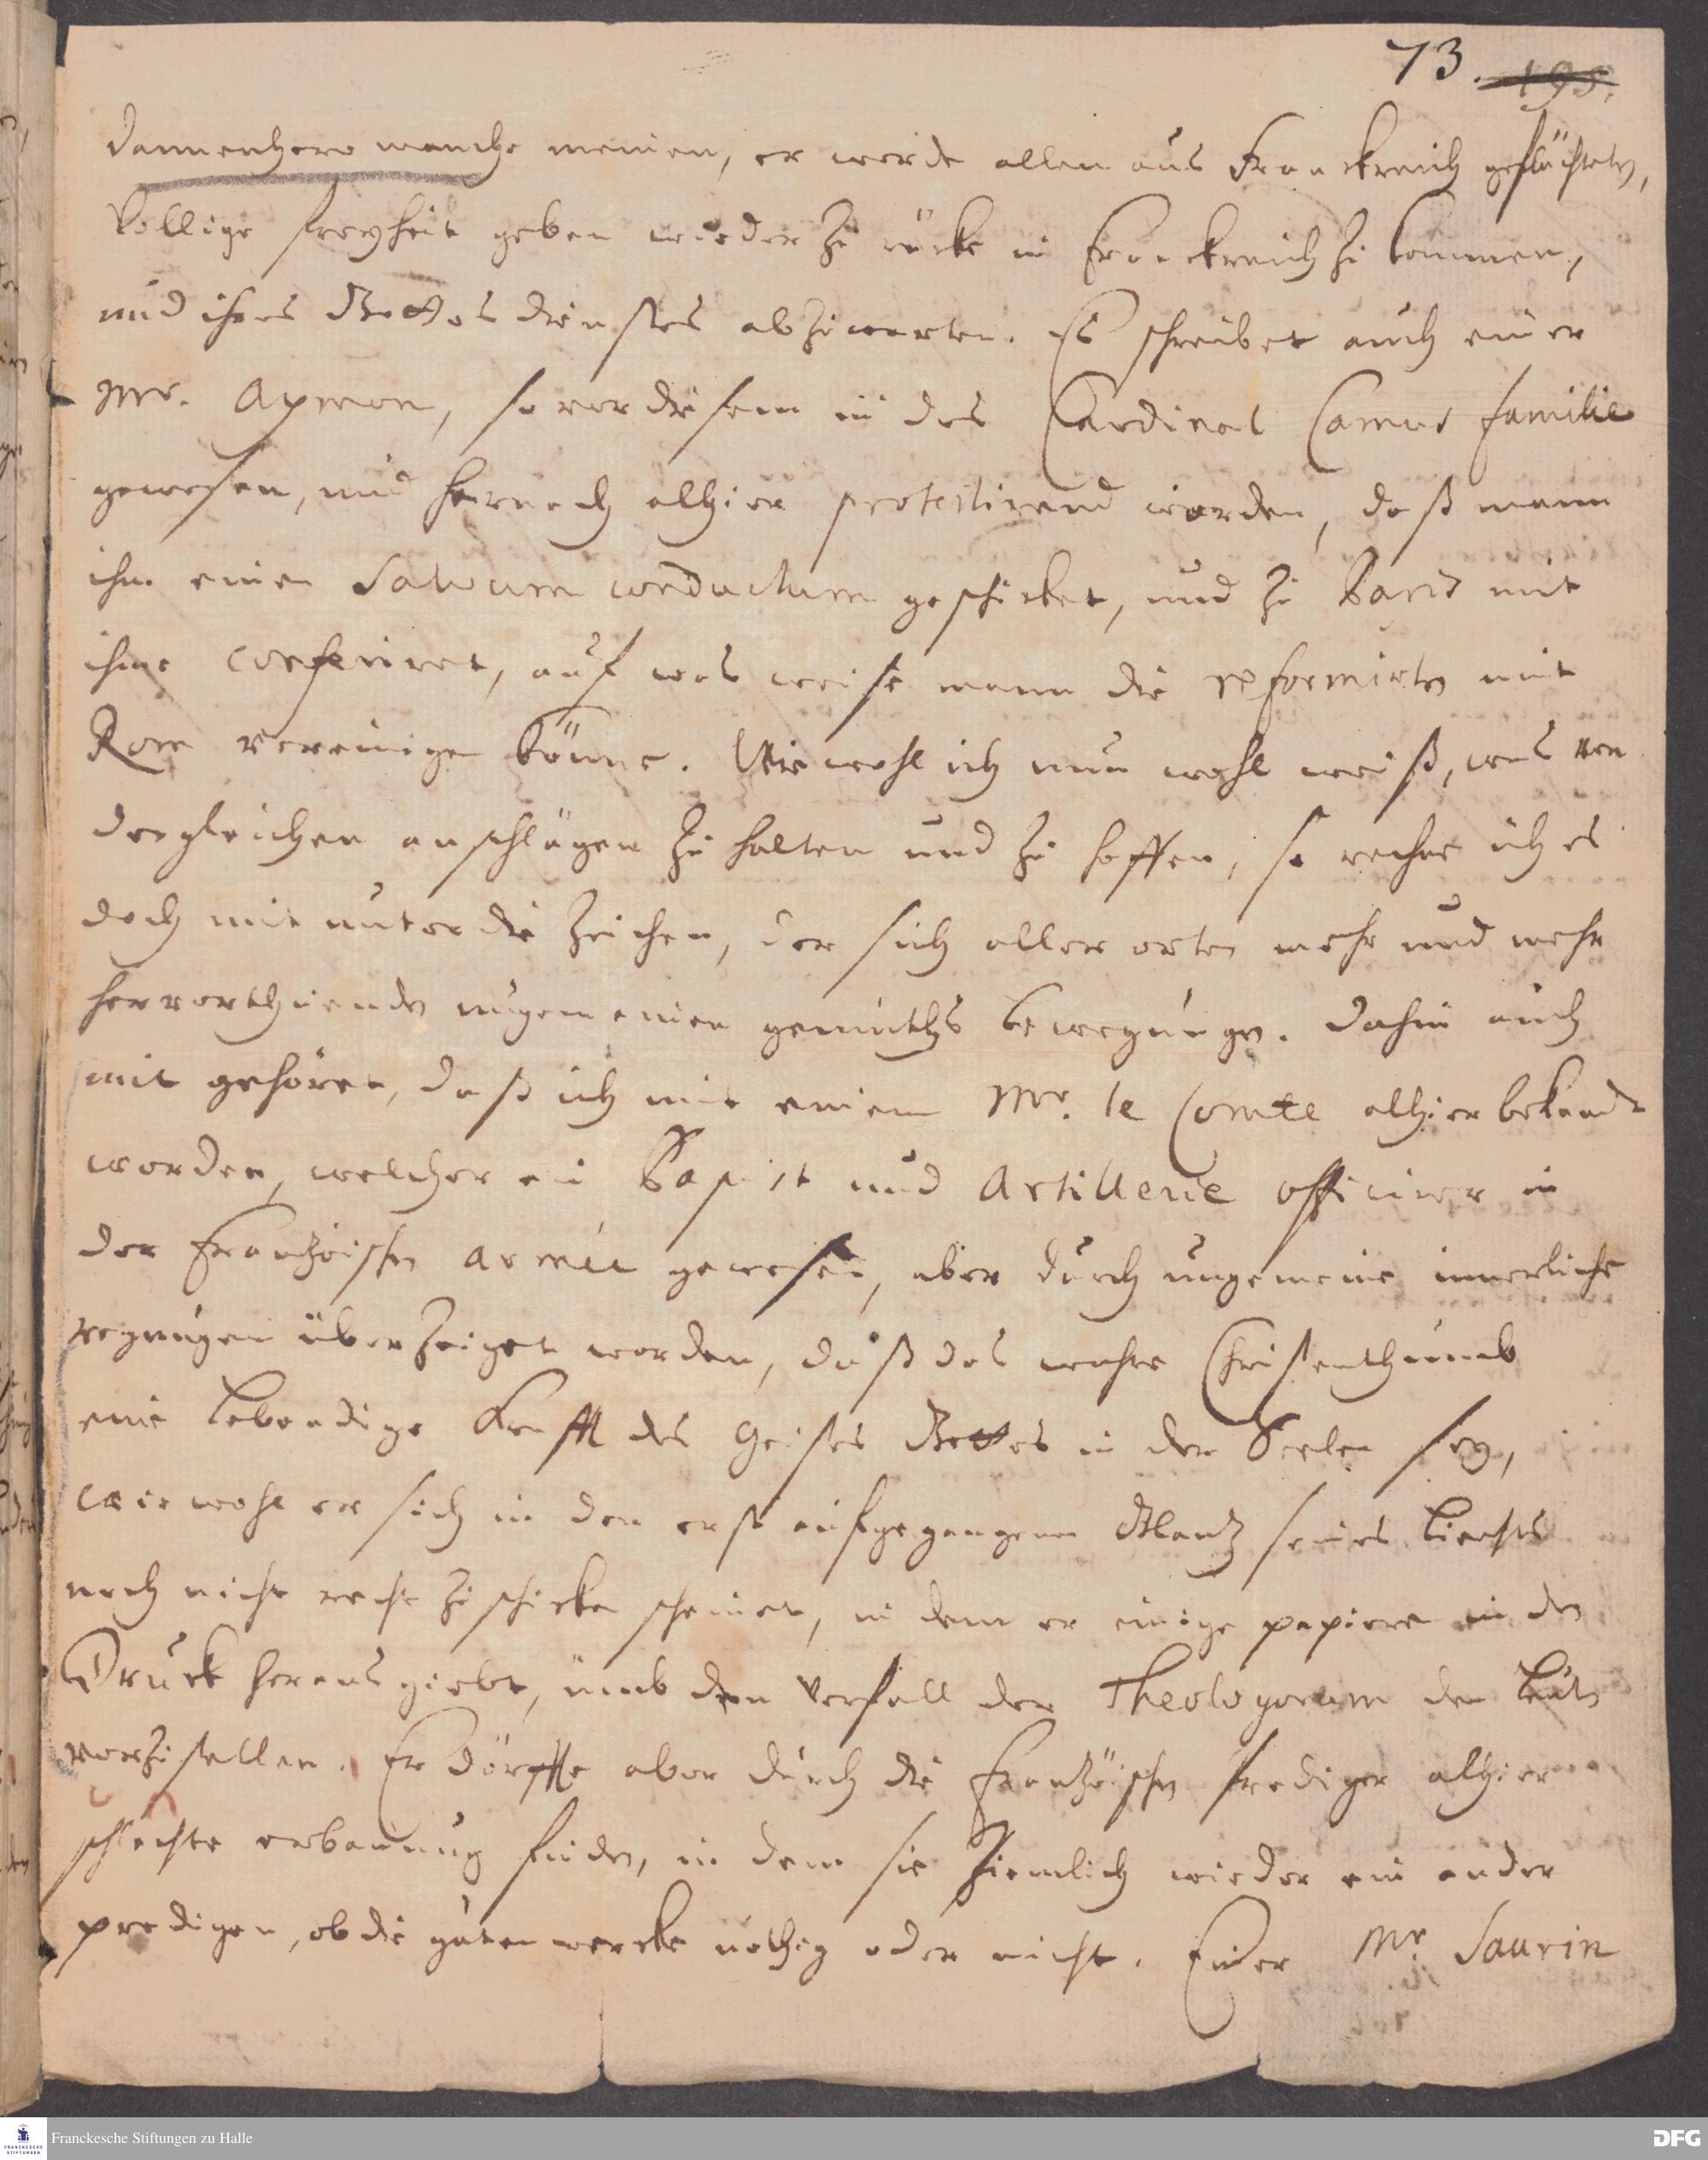 73. 195.
dannenhero manche meinen, er werde allen aus Franckreich geflüchteten,
völlige freyheit geben wieder zu rücke in Franckreich zu kommen,
und ihres Gottes dienstes abzuwarten. Es schreibet auch einer
Mr. Aymon, so vor diesem in des Cardinal Camus familie
gewesen, und hernach alhier protestirend worden, daß mann
ihm einen Salvum conductum geschicket, und zu Paris mit
ihme conferiret, auf was weise mann die reformirten mit
Rom vereinigen könne. Wiewohl ich nun wohl weiß, was von
dergleichen anschlägen zu halten und zu hoffen, so rechne ich es
doch mit unter die Zeichen, der sich aller orten mehr und mehr
hervorthuenden ungemeinen gemüths bewegungen. Dahin auch
mit gehöret, daß ich mit einem Mr. le Comte alhier bekandt
worden, welcher ein Papist und Artillerie officirer in
der Frantzöischen armée gewesen, aber durch ungemeine innerliche
regungen überzeiget worden, daß das wahre Christenthumb
eine lebendige Krafft des Geistes Gottes in der Seelen sey,
wiewohl er sich in den erst aufgegangenen Glantz seines Liechts
noch nicht recht zu schicken scheinet, in dem er einige papiere in den
Druck heraus giebt, umb den Verfall der Theologorum den Leuten
vorzustellen. Er dörffte aber durch die Frantzöischen Prediger alhier
schlechte erbauung finden, in dem sie ziemlich wieder ein ander
predigen, ob die guten wercke nöthig oder nicht. Einer Mr. Saurin
Franckesche Stiftungen zu Halle
DFG